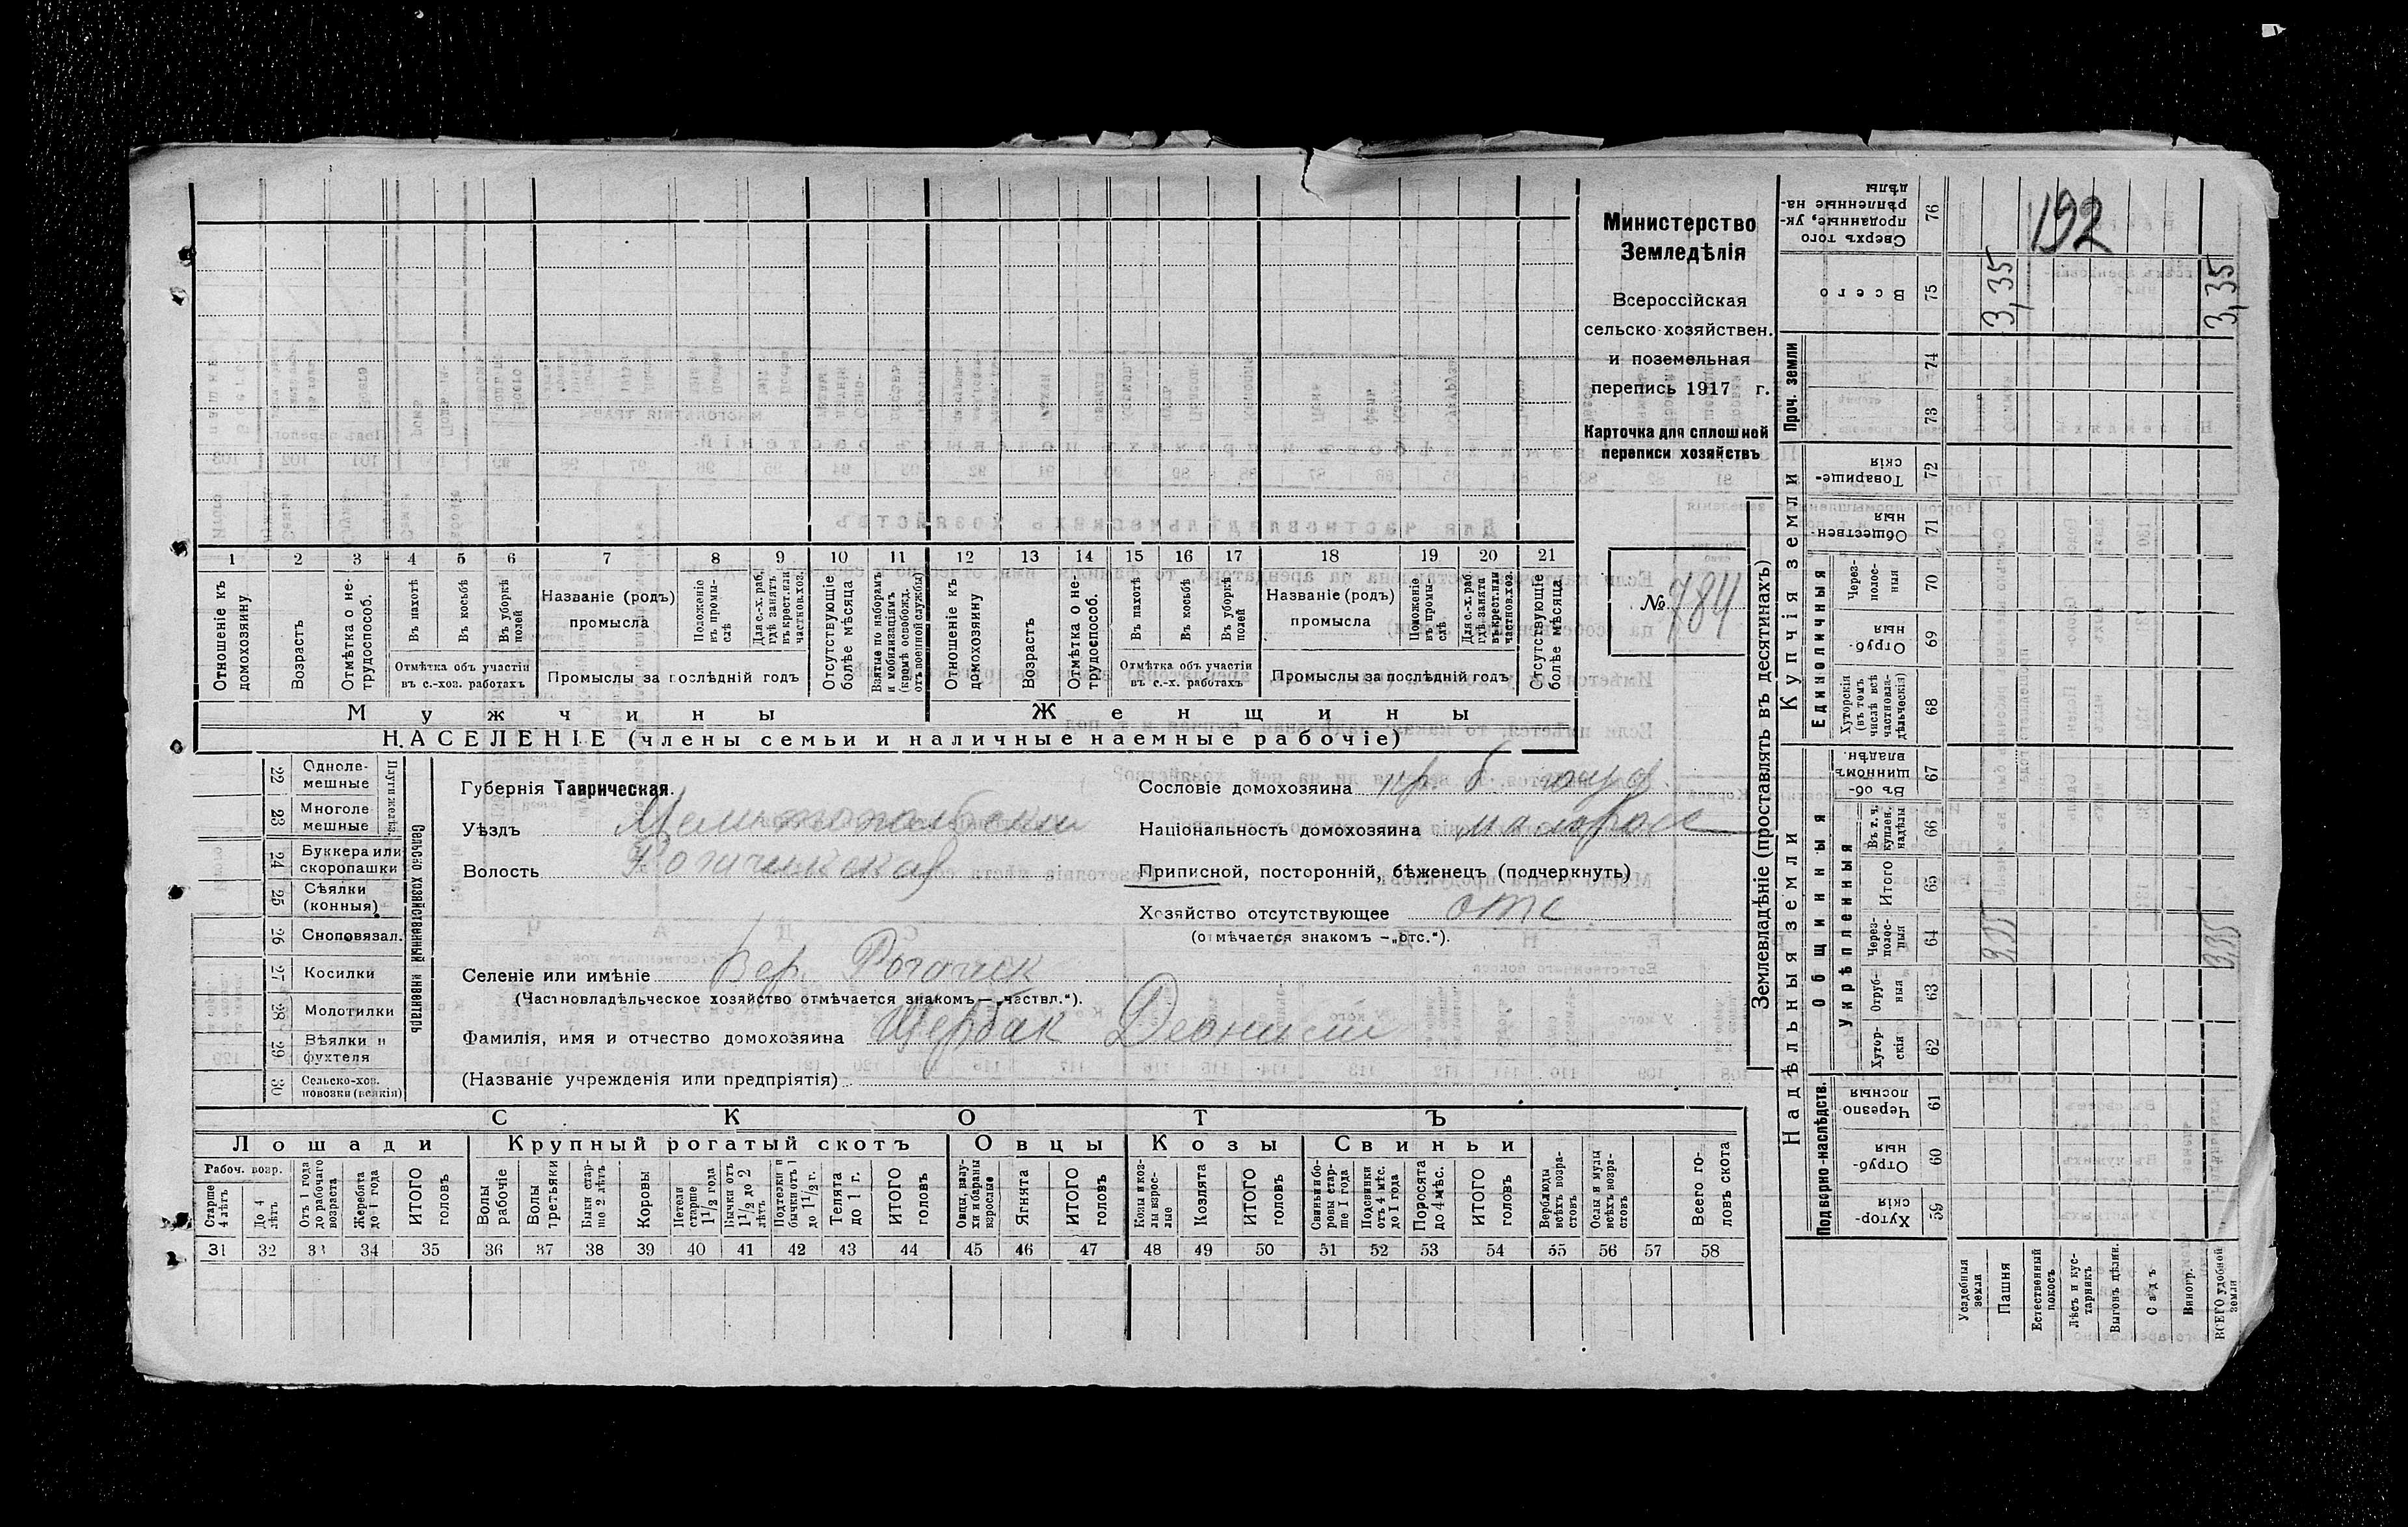 Министерство
Земледѣлія
Всероссійская
сельско-хозяйствен.
и поземельная
перепись 1917 г.
Карточка для сплошной
переписи хозяйствъ
№ 784
192
1 2 3 4 5 6 7 8 9 10 11 12 13 14 15 16 17 18 19 20 21
Отношеніе къ домохозяину
Возрастъ
Отмѣтка о не-трудоспособ.
Въ пахотѣ
Въ косьбѣ
Въ уборкѣ полей
Отмѣтка объ участіи въ с.-хоз. работахъ
Названіе (родъ) промысла
Положеніе въ промы-слѣ
Для с.-х. раб. гдѣ занятъ въ крест. или частнов. хоз.
Промыслы за послѣдній годъ
Отсутствующіе болѣе мѣсяца
Взятые по наборамъ и мобилизаціямъ (кромѣ освобожд. отъ военной службы)
Отношеніе къ домохозяину
Возрастъ
Отмѣтка о не-трудоспособ.
Въ пахотѣ
Въ косьбѣ
Въ уборкѣ полей
Отмѣтка объ участіи въ с.-х. работахъ
Названіе (родъ) промысла
Положеніе въ промы-слѣ
Для с.-х. раб. гдѣ занята въ крест. или частнов. хоз.
Промыслы за послѣдній годъ
Отсутствующіе болѣе мѣсяца
Мужчины Женщины
НАСЕЛЕНІЕ (члены семьи и наличные наемные рабочіе)
22 Одноле-мешные
23 Многоле мешные
24 Буккера или скоропашки
25 Сѣялки (конныя)
26 Сноповязал.
27 Косилки
28 Молотилки
29 Вѣялки и фухтеля
30 Сельско-хоз. повозки (всякія)
Сельско хозяйственный инвентарь
Губернія Таврическая.
Уѣздъ Мелитопольский
Волость Рогачикская
Селеніе или имѣніе Вер. Рогачик
(Частновладѣльческое хозяйство отмѣчается знакомъ—„частвл.“).
Фамилія, имя и отчество домохозяина Щербак Деонисий
(Названіе учрежденія или предпріятія)
Сословіе домохозяина
Національность домохозяина малоросс
Приписной, посторонній, бѣженецъ (подчеркнуть)
Хозяйство отсутствующее отс
(отмѣчается знакомъ —„отс.“).
СКОТЪ
Лошади Крупный рогатый скотъ Овцы Козы Свиньи
Рабоч. возр.
Старше 4 лѣтъ
До 4 лѣтъ
Отъ 1 года до рабочаго возраста
Жеребята до 1 года
ИТОГО головъ
Волы рабочіе
Волы третьяки
Быки стар-ше 2 лѣтъ
Коровы
Нетели старше 1½ года
Бычки отъ 1½ до 2 лѣтъ
Подтелки и бычки отъ 1 до 1½ г.
Телята до 1 г.
ИТОГО головъ
Овцы, валу-хи и бараны взрослые
Ягнята
ИТОГО головъ
Козы и коз-лы взрос-лые
Козлята
ИТОГО головъ
Свиньи бо-ровы стар-ше 1 года
Подсвинки отъ 4 мѣс. до 1 года
Поросята до 4 мѣс.
ИТОГО головъ
Верблюды всѣхъ возра-стовъ
Ослы и мулы всѣхъ возра-стовъ
Всего го-ловъ скота
31 32 33 34 35 36 37 38 39 40 41 42 43 44 45 46 47 48 49 50 51 52 53 54 55 56 57 58
Землевладѣніе (проставлять въ десятинахъ)
Надѣльныя земли Купчія земли Проч. земли
Подворно-наслѣдств. Общинныя Единоличныя
Укрѣпленныя
Хутор-скія 59
Отруб-ныя 60
Черезпо лосныя 61
Хутор-скія 62
Отруб-ныя 63
Черезполос-ныя 64 3,35 3,35
Итого 65
Въ т. ч. куплен. надѣлы 66
Въ об-щинномъ владѣн. 67
Хуторскія (въ томъ числѣ всѣ частновла-дѣльческія) 68
Отруб-ныя 69
Черезполос-ныя 70
Обществен-ныя 71
Товарище-скія 72
73
74
Всего 75 3,35 3,35
Сверхъ того проданные, ук-рѣпленные на-дѣлы 76
Усадебныя земли
Пашня
Естественный покосъ
Лѣсъ и кус-тарникъ
Выгонъ цѣлин.
Садъ
Виногр.
ВСЕГО удобной земли